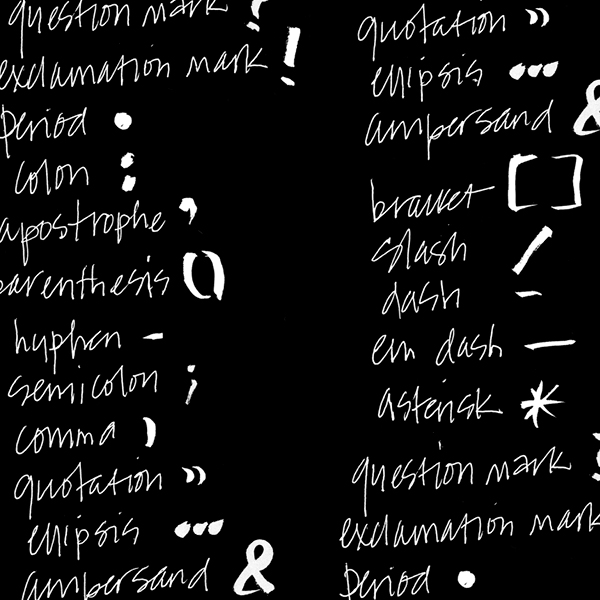 question mark ?
exclamation mark !
period .
colon :
apostrophe '
parenthesis ()
hyphen -
semicolon ;
comma ,
quotation ”
ellipsis ...
ampersand &
quotation ”
ellipsis ...
ampersand &
bracket []
slash /
dash –
em dash —
asterisk *
question mark ?
exclamation mark
period .